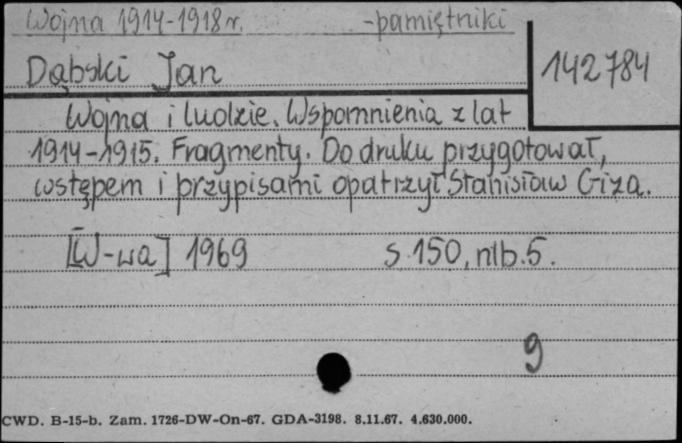 Wojna 1914-1918 r. -pamiętniki
Dąbski Jan 142784
Wojna i ludzie. Wspomnienia z lat
1914-1915. Fragmenty. Do druku przygotował,
wstępem i przypisami opatrzył Stanisław Giza.
[W-wa] 1969 s. 150, nlb. 5.
9
CWD. B-15-b. Zam. 1726-DW-On-67. GDA-3198. 8.11.67. 4.630.000.